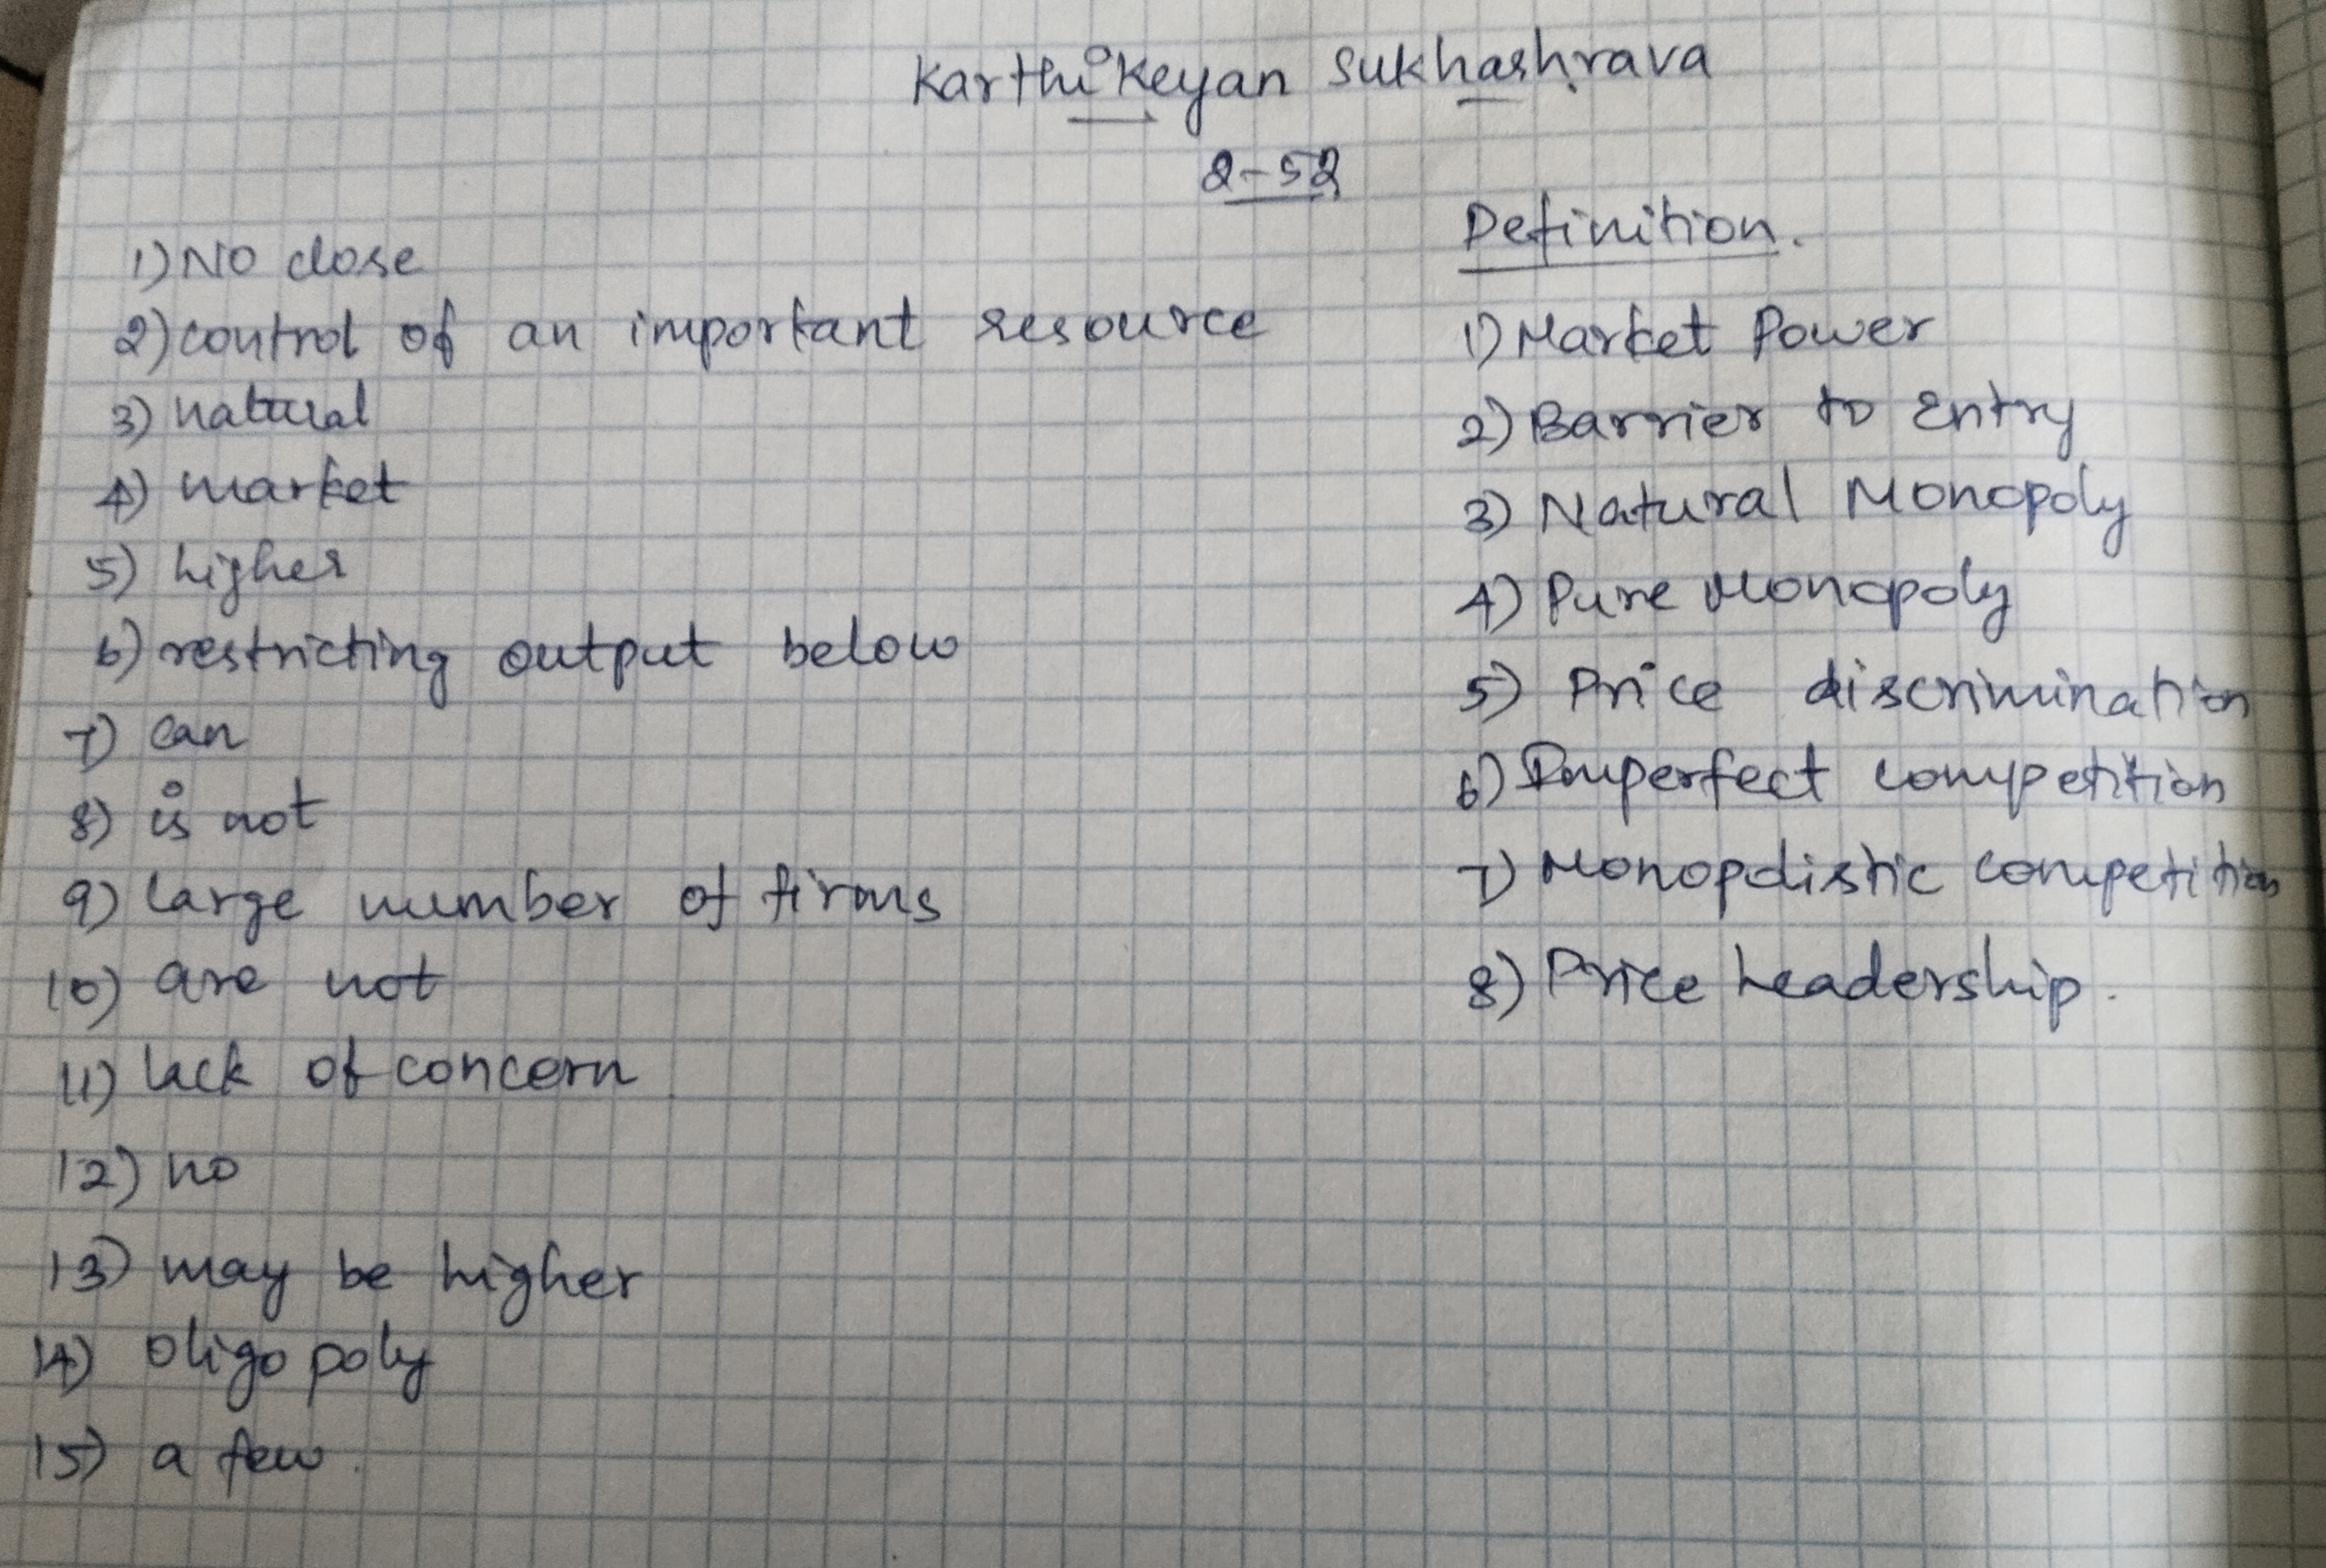 Karthikeyan Sukhashrava
2-52
1) No close
2) control of an important resource
3) natural
4) market
5) higher
6) restricting output below
7) can
8) is not
9) large number of firms
10) are not
11) lack of concern
12) no
13) may be higher
14) oligopoly
15) a few.
Definition.
1) Market Power
2) Barrier to Entry
3) Natural Monopoly
4) Pure Monopoly
5) Price discrimination
6) Imperfect competition
7) Monopolistic competition
8) Price Leadership.